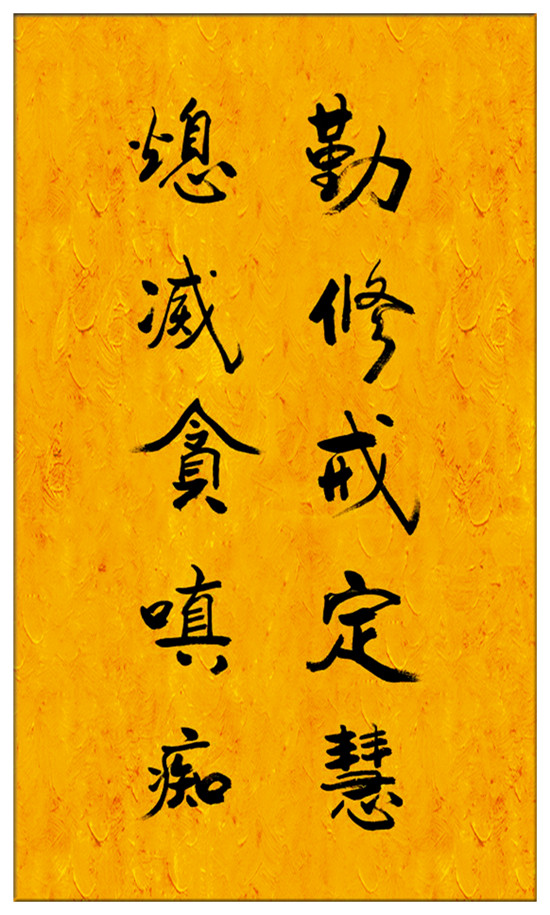 勤修戒定慧
熄滅貪嗔痴